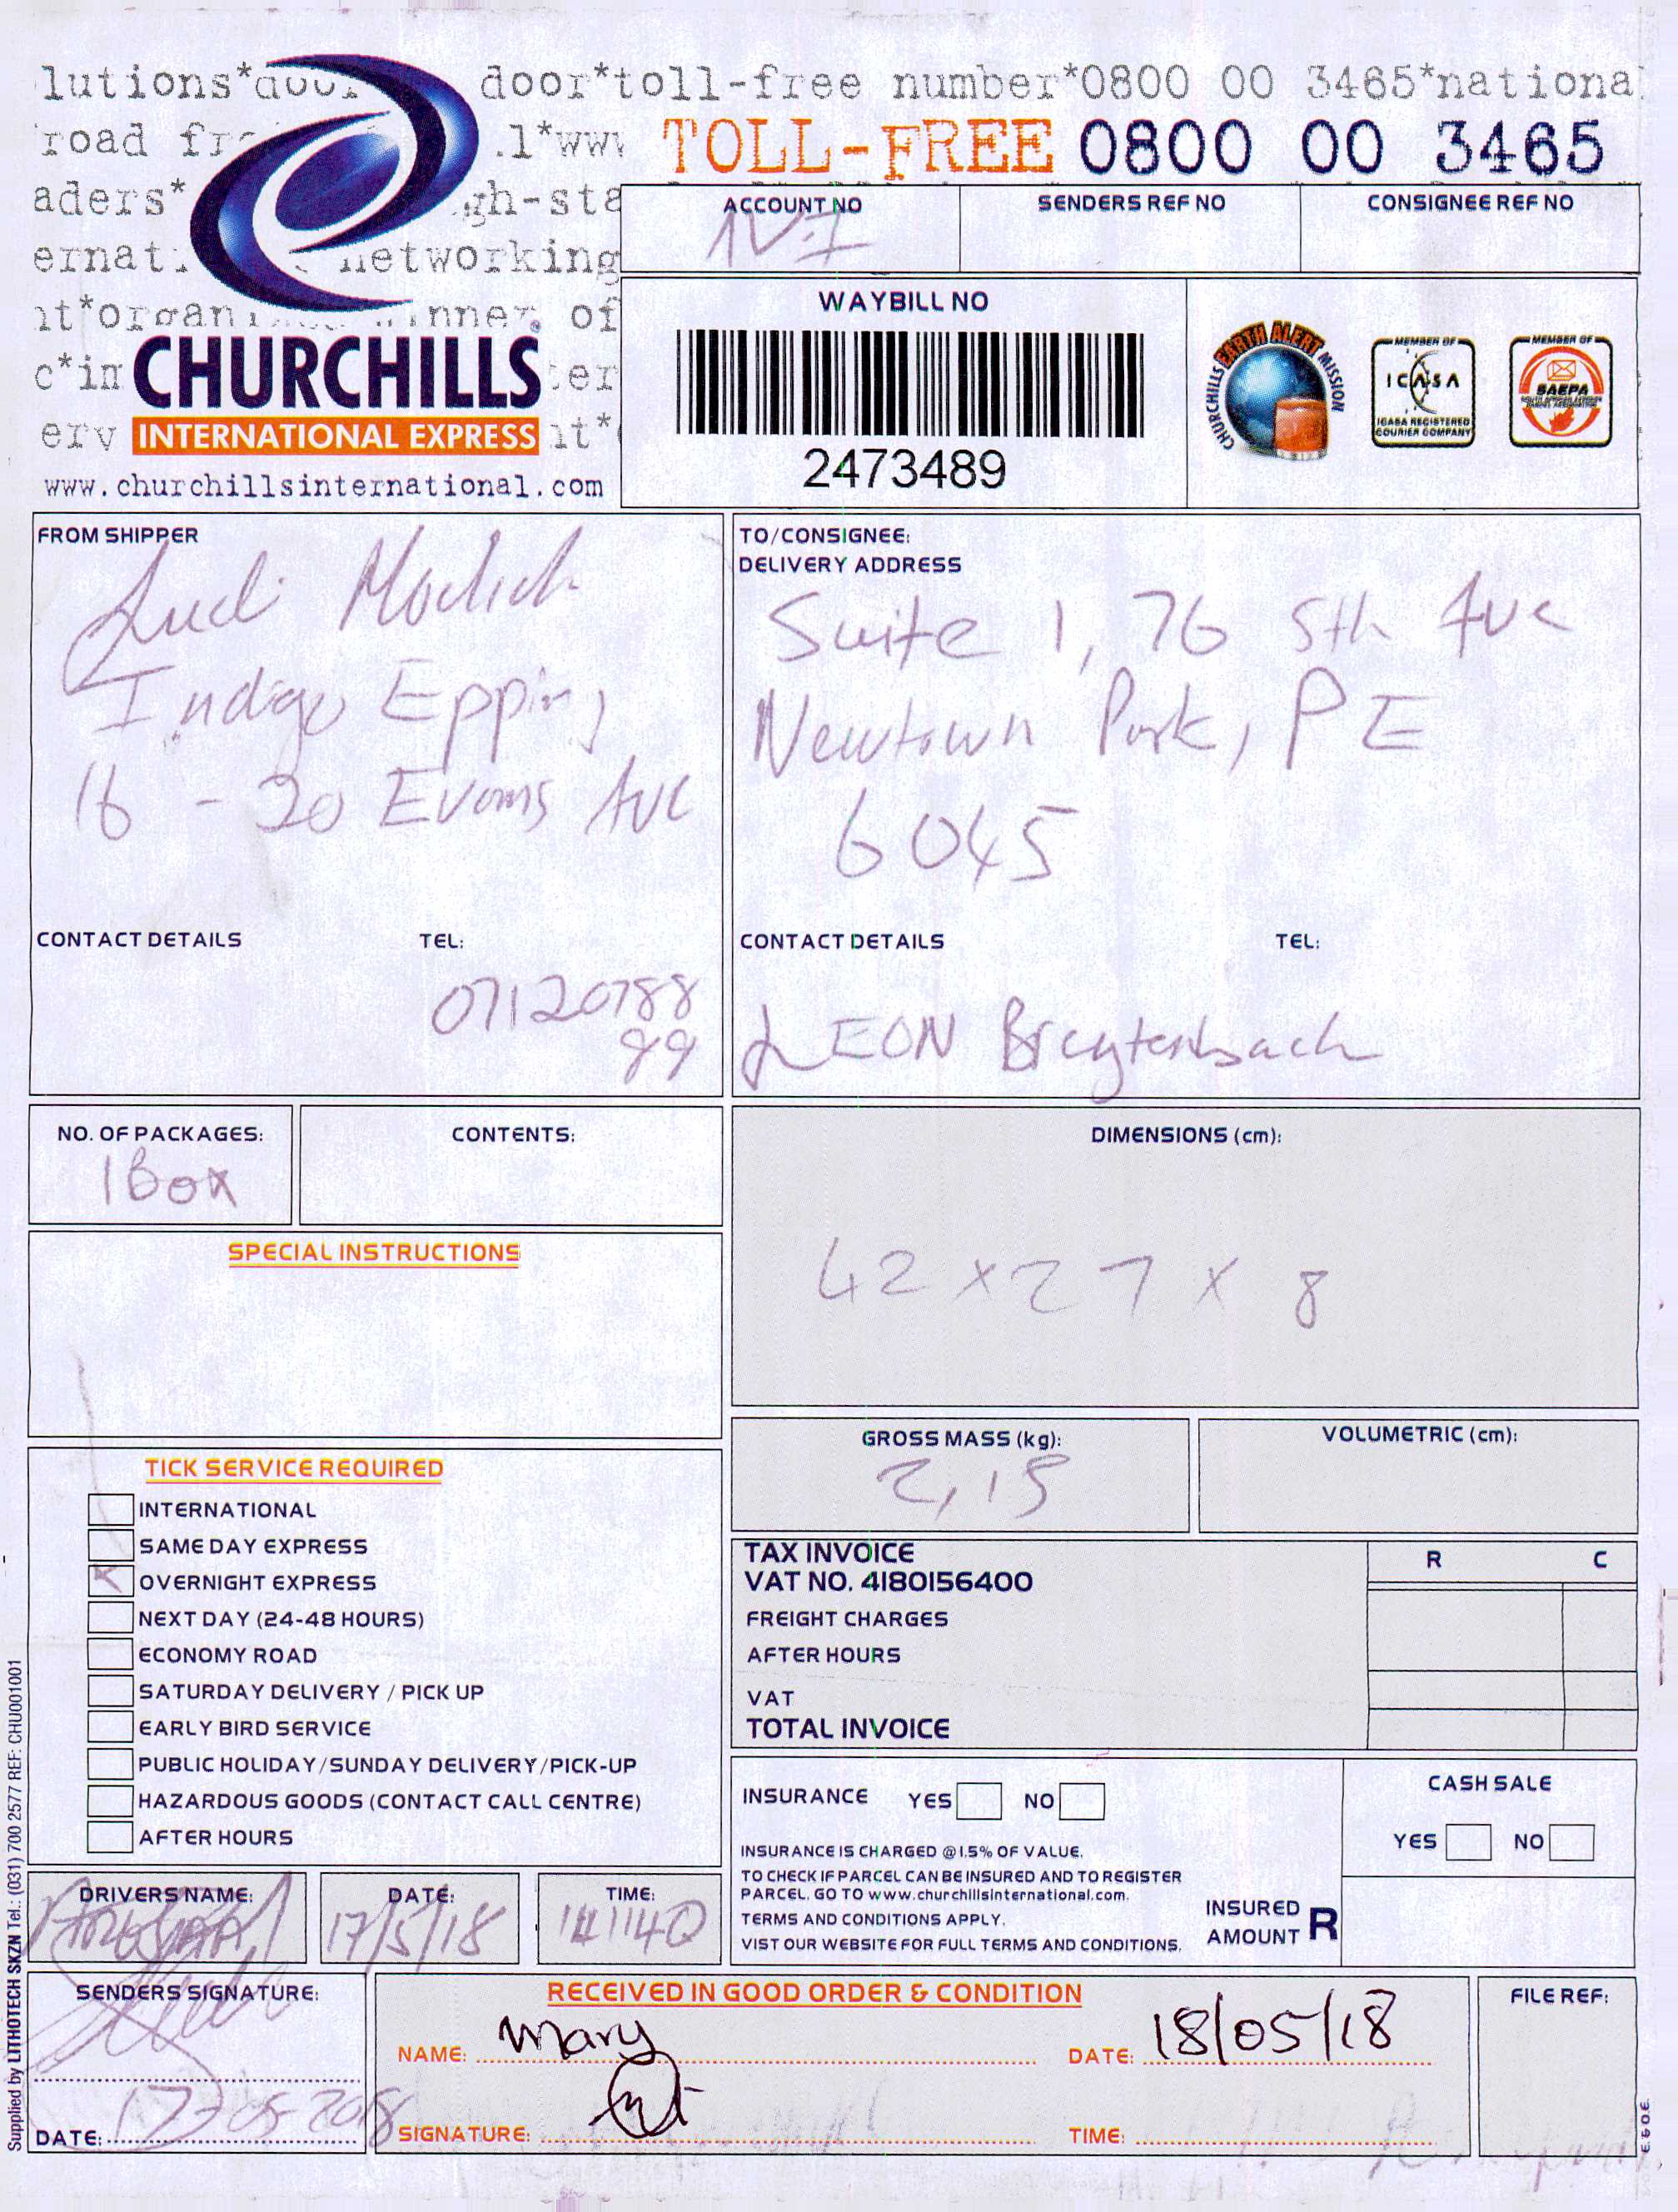 lutions*door door*toll-free number*0800 00 3465*national
road .l*www
TOLL-FREE 0800 00 3465
aders* gh-sta
ernat networking
nt*organi inner of
c*in ter
erv nt*
CHURCHILLS
INTERNATIONAL EXPRESS
www.churchillsinternational.com
ACCOUNT NO
SENDERS REF NO
CONSIGNEE REF NO
WAYBILL NO
2473489
CHURCHILLS EARTH ALERT MISSION
MEMBER OF
ICASA
ICASA REGISTERED
COURIER COMPANY
MEMBER OF
SAEPA
FROM SHIPPER
Indigo Epping
16 - 20 Evans Ave
CONTACT DETAILS TEL:
07120788
99
TO/CONSIGNEE:
DELIVERY ADDRESS
Suite 1, 76 5th Ave
Newtown Park, PE
6045
CONTACT DETAILS TEL:
LEON Breytenbach
NO. OF PACKAGES:
1 Box
CONTENTS:
DIMENSIONS (cm):
42 x 27 x 8
SPECIAL INSTRUCTIONS
GROSS MASS (kg):
2,15
VOLUMETRIC (cm):
TICK SERVICE REQUIRED
INTERNATIONAL
SAME DAY EXPRESS
OVERNIGHT EXPRESS
NEXT DAY (24-48 HOURS)
ECONOMY ROAD
SATURDAY DELIVERY / PICK UP
EARLY BIRD SERVICE
PUBLIC HOLIDAY/SUNDAY DELIVERY/PICK-UP
HAZARDOUS GOODS (CONTACT CALL CENTRE)
AFTER HOURS
TAX INVOICE
VAT NO. 4180156400
R C
FREIGHT CHARGES
AFTER HOURS
VAT
TOTAL INVOICE
INSURANCE YES NO
INSURANCE IS CHARGED @ 1.5% OF VALUE.
TO CHECK IF PARCEL CAN BE INSURED AND TO REGISTER
PARCEL, GO TO www.churchillsinternational.com.
TERMS AND CONDITIONS APPLY.
VIST OUR WEBSITE FOR FULL TERMS AND CONDITIONS.
INSURED
AMOUNT R
CASH SALE
YES NO
DRIVERS NAME:
DATE:
17/5/18
TIME:
SENDERS SIGNATURE:
DATE: 17-05-2018
RECEIVED IN GOOD ORDER & CONDITION
NAME: Mary
DATE: 18/05/18
SIGNATURE:
TIME:
FILE REF:
E.&O.E.
Supplied by LITHOTECH SKZN Tel.: (031) 700 2577 REF: CHU001001